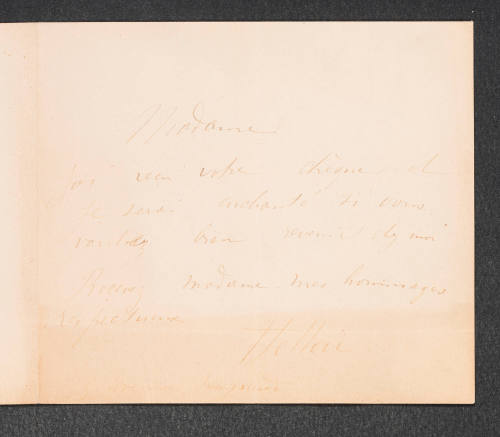 Madame
J'ai reçu votre chèque et
je serai enchanté si vous
voulez bien revenir chez moi
Recevez madame mes hommages
respectueux
Helleu